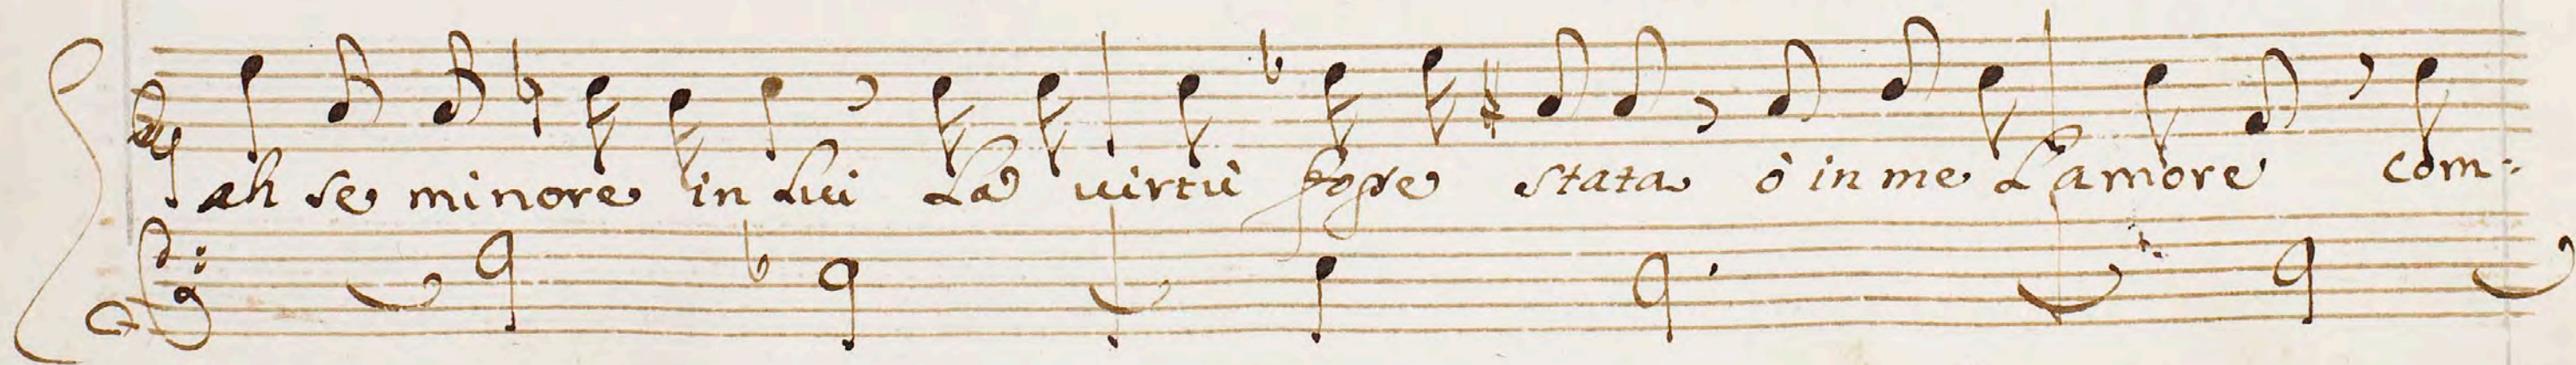 ah se minore in Lui La uirtù fosse stata ò in me L'amore com: